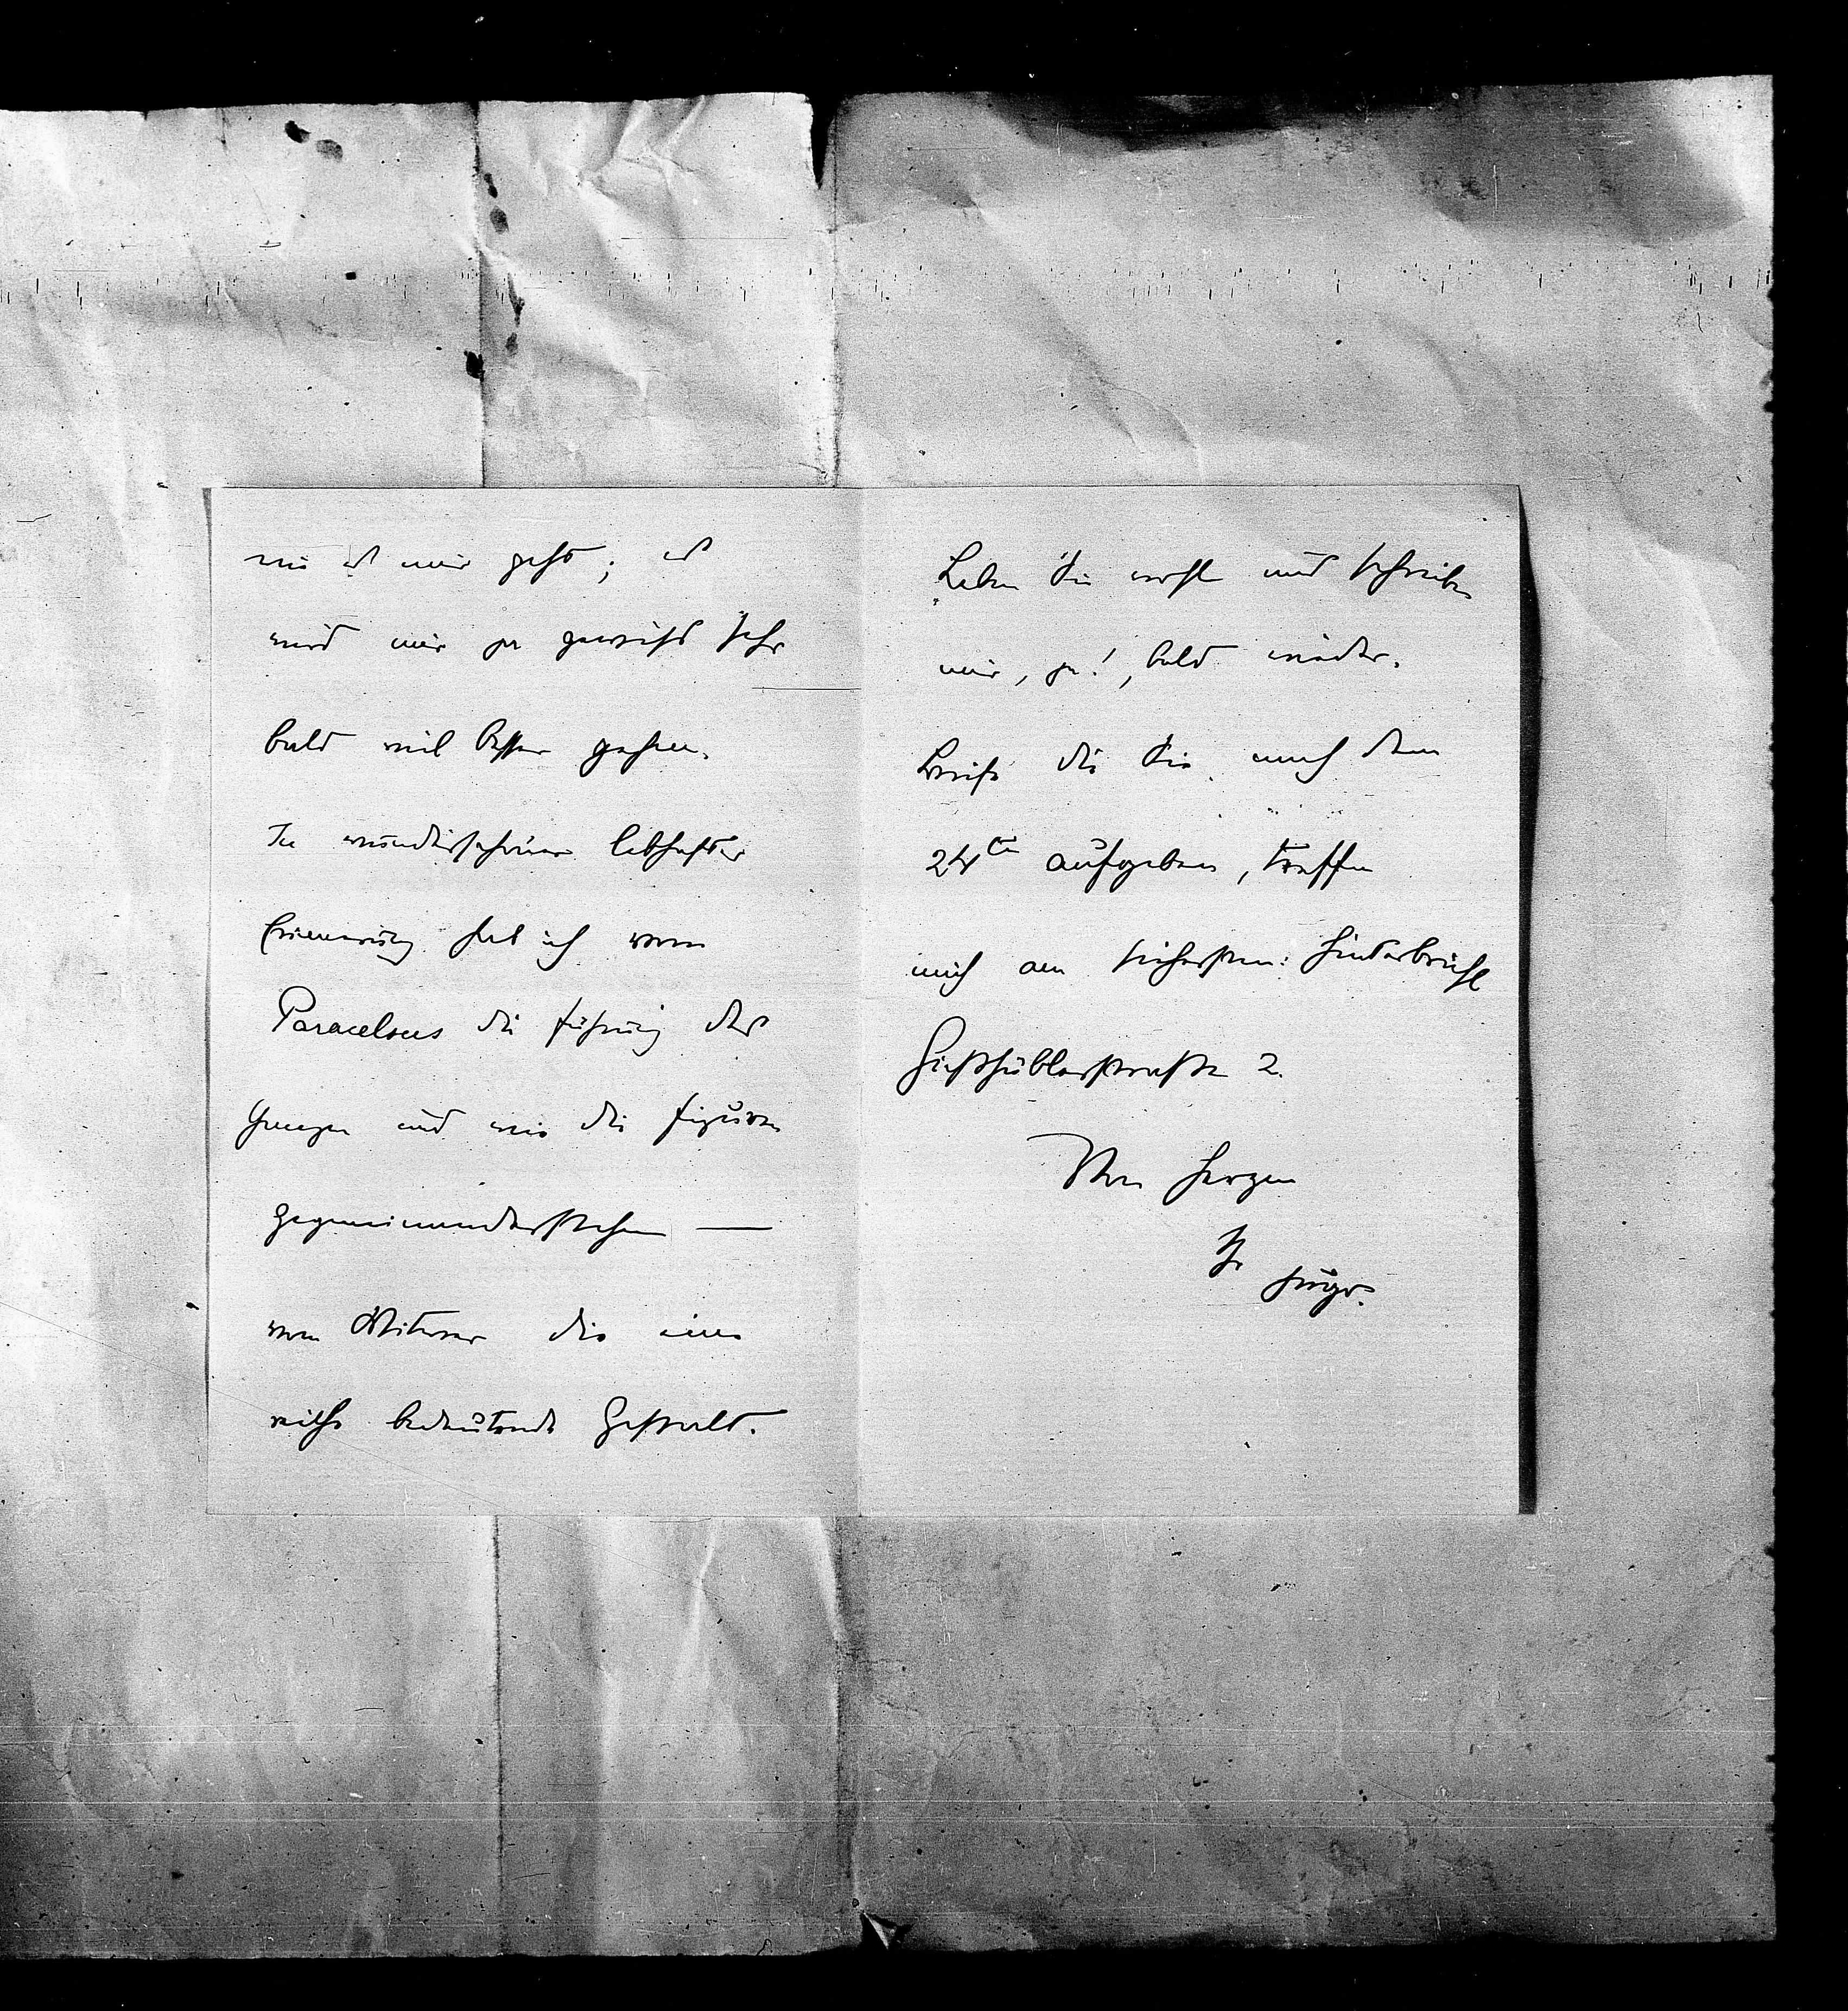 wie es mir geht; es
wird mir ja gewiss sehr
bald viel besser gehen.
In wunderschöner lebhafter
Erinnerung hab ich vom
Paracelsus die Führung des
Ganzen und wie die Figuren
gegeneinanderstehen —
vom Mitterer die eine
recht bedeutende Gestalt.
Leben Sie wohl und schreiben
mir, ja!, bald wieder.
Briefe die Sie nach dem
24ten aufgeben, treffen
mich am sichersten: Hinterbrühl
Gießhüblerstraße 2.
Von Herzen
Ihr Hugo.